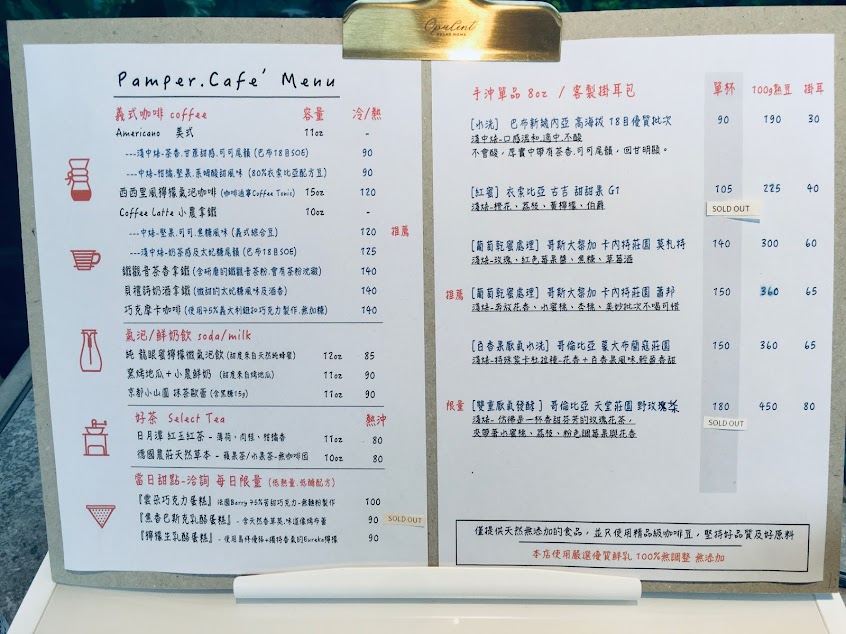 Opulent
Pamper.Café Menu
義式咖啡 coffee 容量 冷/熱
Americano 美式 11oz -
---淺中焙-茶香.甘蔗甜感.可可尾韻 (巴布18目SOE) 90
---中焙-柑橘.堅果.黑糖酸甜感 (80%衣索比亞配方豆) 90
西西里風檸檬氣泡咖啡 (咖啡通寧Coffee Tonic) 15oz 120
Coffee Latte 小農拿鐵 10oz -
---中焙-堅果.可可.焦糖風味 (義式綜合豆) 120 推薦
---淺中焙-奶茶感及太妃糖尾韻 (巴布18目SOE) 125
鐵觀音茶香拿鐵 (含研磨的鐵觀音茶粉.會有茶粉沈澱) 140
貝禮詩奶酒拿鐵 (微甜的太妃糖風味及酒香) 140
巧克摩卡咖啡 (使用75%義大利鈕扣巧克力製作.無加糖) 140
氣泡/鮮奶飲 soda/milk
純 龍眼蜜檸檬微氣泡飲 (甜度來自天然純蜂蜜) 12oz 85
窯烤地瓜+小農鮮奶 (甜度來自烤地瓜) 11oz 90
京都小山園 抹茶歐蕾 (含黑糖15g) 11oz 90
好茶 Select Tea 熱沖
日月潭 紅玉紅茶 - 薄荷、肉桂、柑橘香 11oz 80
德國農莊天然草本 - 蘋果茶/水果茶-無咖啡因 10oz 80
當日甜點-洽詢 每日限量 (低熱量.低醣配方)
『雲朵巧克力蛋糕』法國Barry 75%苦甜巧克力-無麵粉製作 100
『焦香巴斯克乳酪蛋糕』- 含天然香草莢.味道像烤布蕾 90 SOLD OUT
『檸檬生乳酪蛋糕』- 使用馬修優格+獨特香氣的Eureka檸檬 90
手沖單品 8oz / 客製掛耳包 單杯 100g熟豆 掛耳
[水洗] 巴布新幾內亞 高海拔 18目優質批次 90 190 30
淺中焙-口感溫和.適中.不酸
不會酸，厚實中帶有茶香.可可尾韻，回甘明顯。
[紅蜜] 衣索比亞 古吉 甜甜果 G1 105 225 40
淺焙-橙花、荔枝、黃檸檬、伯爵
SOLD OUT
[葡萄乾蜜處理] 哥斯大黎加 卡內特莊園 莫札特 140 300 60
淺焙-玫瑰、紅色莓果醬、焦糖、草莓酒
推薦 [葡萄乾蜜處理] 哥斯大黎加 卡內特莊園 蕭邦 150 360 65
淺焙-奔放花香、小蜜桃、杏桃、美妙批次不喝可惜
[百香果厭氧水洗] 哥倫比亞 蒙大布蘭寇莊園 150 360 65
淺焙-特殊紫卡杜拉種-花香+百香果風味.輕苗香甜
限量 [雙重厭氧發酵 ] 哥倫比亞 天堂莊園 野玫瑰 180 450 80
淺焙- 仿佛是一杯香甜芬芳的玫瑰花茶，
夾帶著水蜜桃、荔枝、粉色調莓果與花香
SOLD OUT
僅提供天然無添加的食品，並只使用精品級咖啡豆，堅持好品質及好原料
本店使用嚴選優質鮮乳 100%無調整 無添加